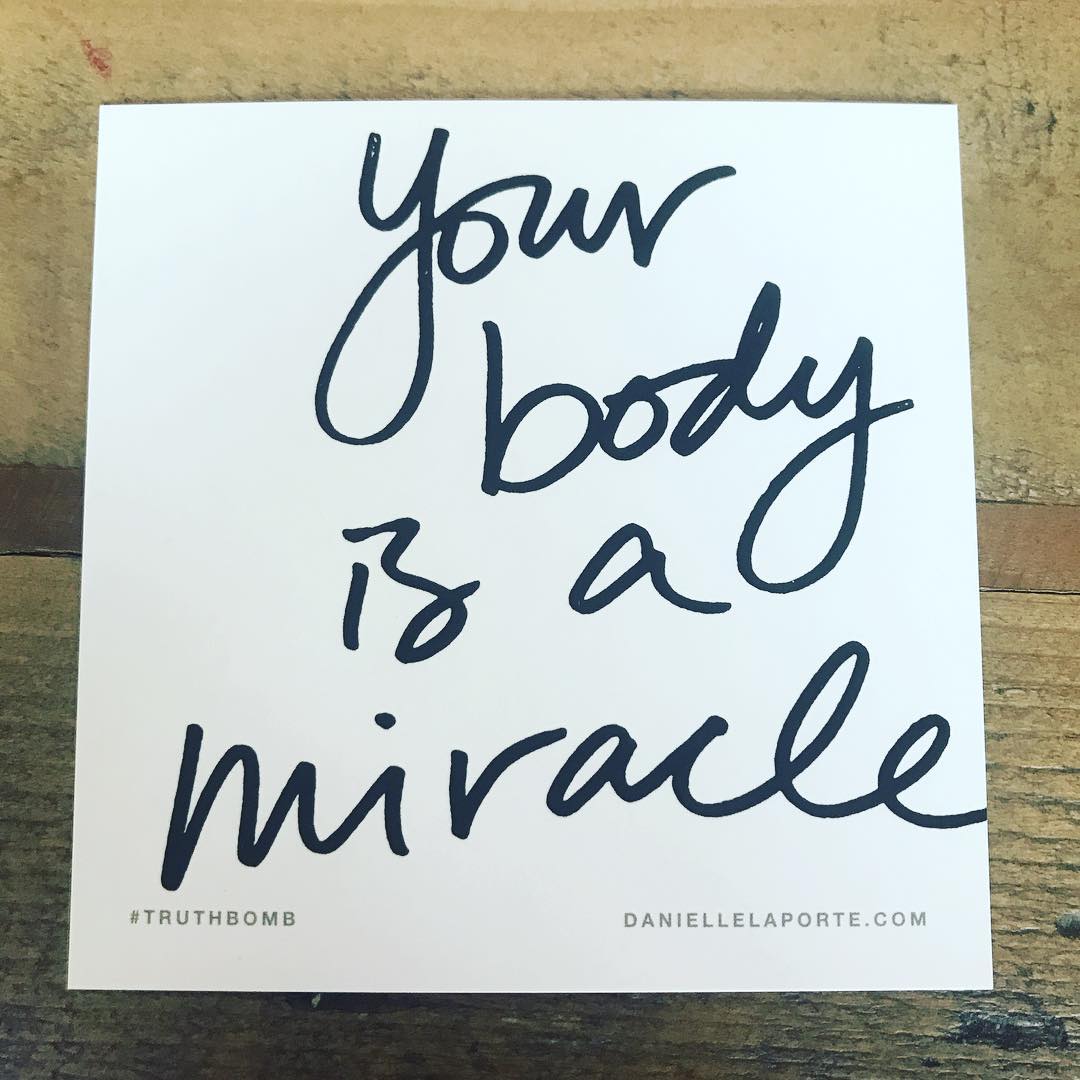 your
body
is a
miracle
#TRUTHBOMB
DANIELLELAPORTE.COM